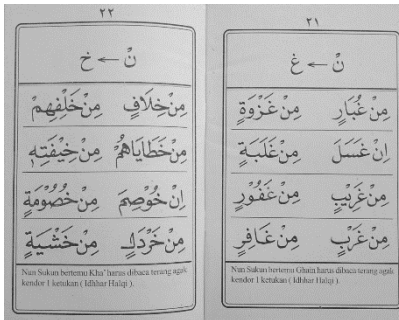 ٢١
نْ ← غ
مِنْ غُبَارٍ مِنْ غَزْوَةٍ
اِنْ غَسَلَ مِنْ غَلَبَةٍ
مِنْ غَرِيْبٍ مِنْ غَفُوْرٍ
مِنْ غَرْبٍ مِنْ غَافِرٍ
Nun Sukun bertemu Ghain harus dibaca terang agak
kendor 1 ketukan ( Idhhar Halqi ).
٢٢
نْ ← خ
مِنْ خِلَافٍ مِنْ خَلْفِهِمْ
مِنْ خَطَايَاهُمْ مِنْ خِيْفَتِهٖ
اِنْ خُوْصِمَ مِنْ خُصُوْمَةٍ
مِنْ خَرْدَلٍ مِنْ خَشْيَةٍ
Nun Sukun bertemu Kha' harus dibaca terang agak
kendor 1 ketukan ( Idhhar Halqi ).